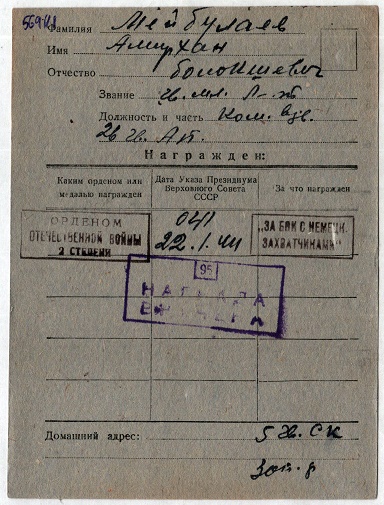 569141
Фамилия Мейбулаев
Имя Амирхан
Отчество
Звание гв. мл. л-т
Должность и часть Ком. взв.
Награжден:
Каким орденом или медалью награжден
Дата Указа Президиума Верховного Совета СССР
За что награжден
ОРДЕНОМ
ОТЕЧЕСТВЕННОЙ ВОЙНЫ
2 СТЕПЕНИ
041
22.1.44
„ЗА БОИ С НЕМЕЦК.
ЗАХВАТЧИКАМИ"
95
НАГРАДА
ВРУЧЕНА
Домашний адрес: 5 гв. СК